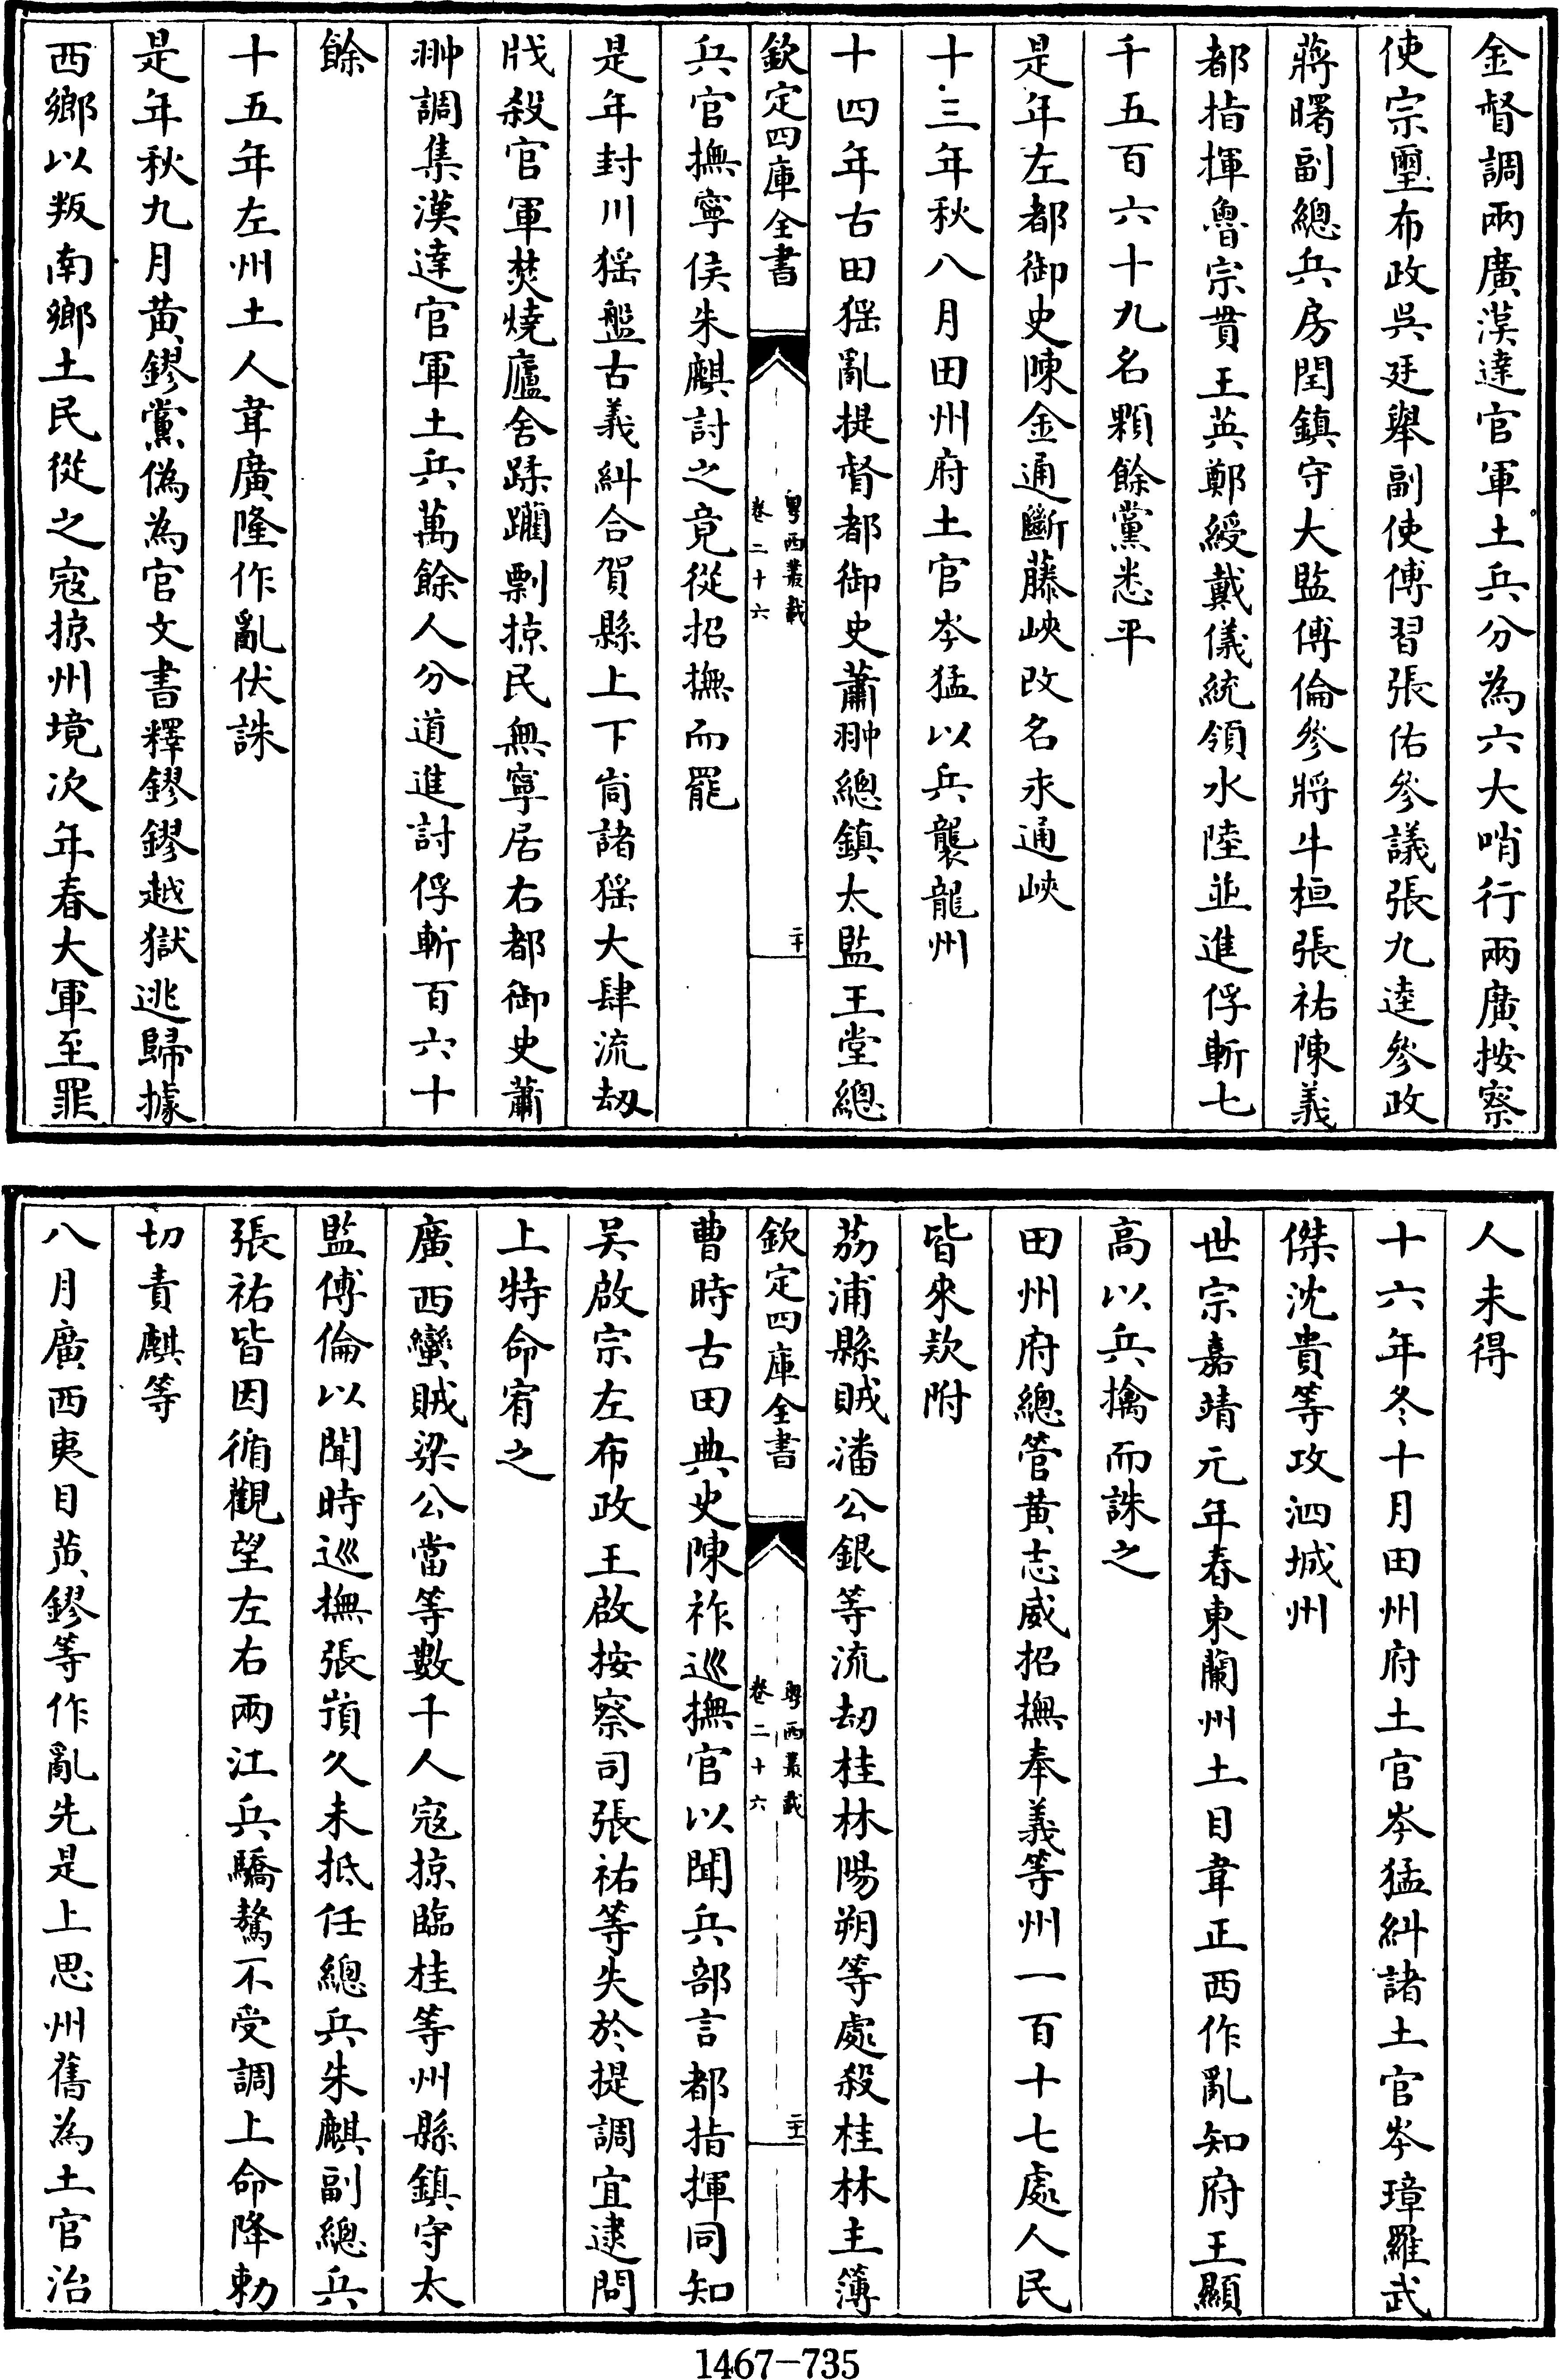 金督調兩廣漢達官軍土兵分為六大哨行兩廣按察
使宗璽布政吳廷舉副使傅習張佑參議張九逵參政
蔣曙副總兵房閏鎮守大監傅倫參將牛桓張祐陳義
都指揮魯宗貫王英鄭綬戴儀統領水陸並進俘斬七
千五百六十九名顆餘黨悉平
是年左都御史陳金通斷藤峽改名永通峽
十三年秋八月田州府土官岑猛以兵襲龍州
十四年古田猺亂提督都御史蕭翀總鎮太監王堂總
欽定四庫全書
粵西叢載
卷二十六
二十
兵官撫寧侯朱麒討之竟從招撫而罷
是年封川猺盤古義糾合賀縣上下峝諸猺大肆流劫
戕殺官軍焚燒廬舍蹂躪剽掠民無寧居右都御史蕭
翀調集漢達官軍土兵萬餘人分道進討俘斬百六十
餘
十五年左州土人韋廣隆作亂伏誅
是年秋九月黃鏐黨偽為官文書釋鏐鏐越獄逃歸據
西鄉以叛南鄉土民從之寇掠州境次年春大軍至罪
人未得
十六年冬十月田州府土官岑猛糾諸土官岑璋羅武
傑沈貴等攻泗城州
世宗嘉靖元年春東蘭州土目韋正西作亂知府王顯
高以兵擒而誅之
田州府總管黃志威招撫奉義等州一百十七處人民
皆來欵附
荔浦縣賊潘公銀等流劫桂林陽朔等處殺桂林主簿
欽定四庫全書
粵西叢載
卷二十六
二十一
曹時古田典史陳祚巡撫官以聞兵部言都指揮同知
吴啟宗左布政王啟按察司張祐等失於提調宜逮問
上特命宥之
廣西蠻賊梁公當等數千人寇掠臨桂等州縣鎮守太
監傅倫以聞時巡撫張嵿久未抵任總兵朱麒副總兵
張祐皆因循觀望左右兩江兵驕驁不受調上命降勅
切責麒等
八月廣西夷目黃鏐等作亂先是上思州舊為土官治
1467-735